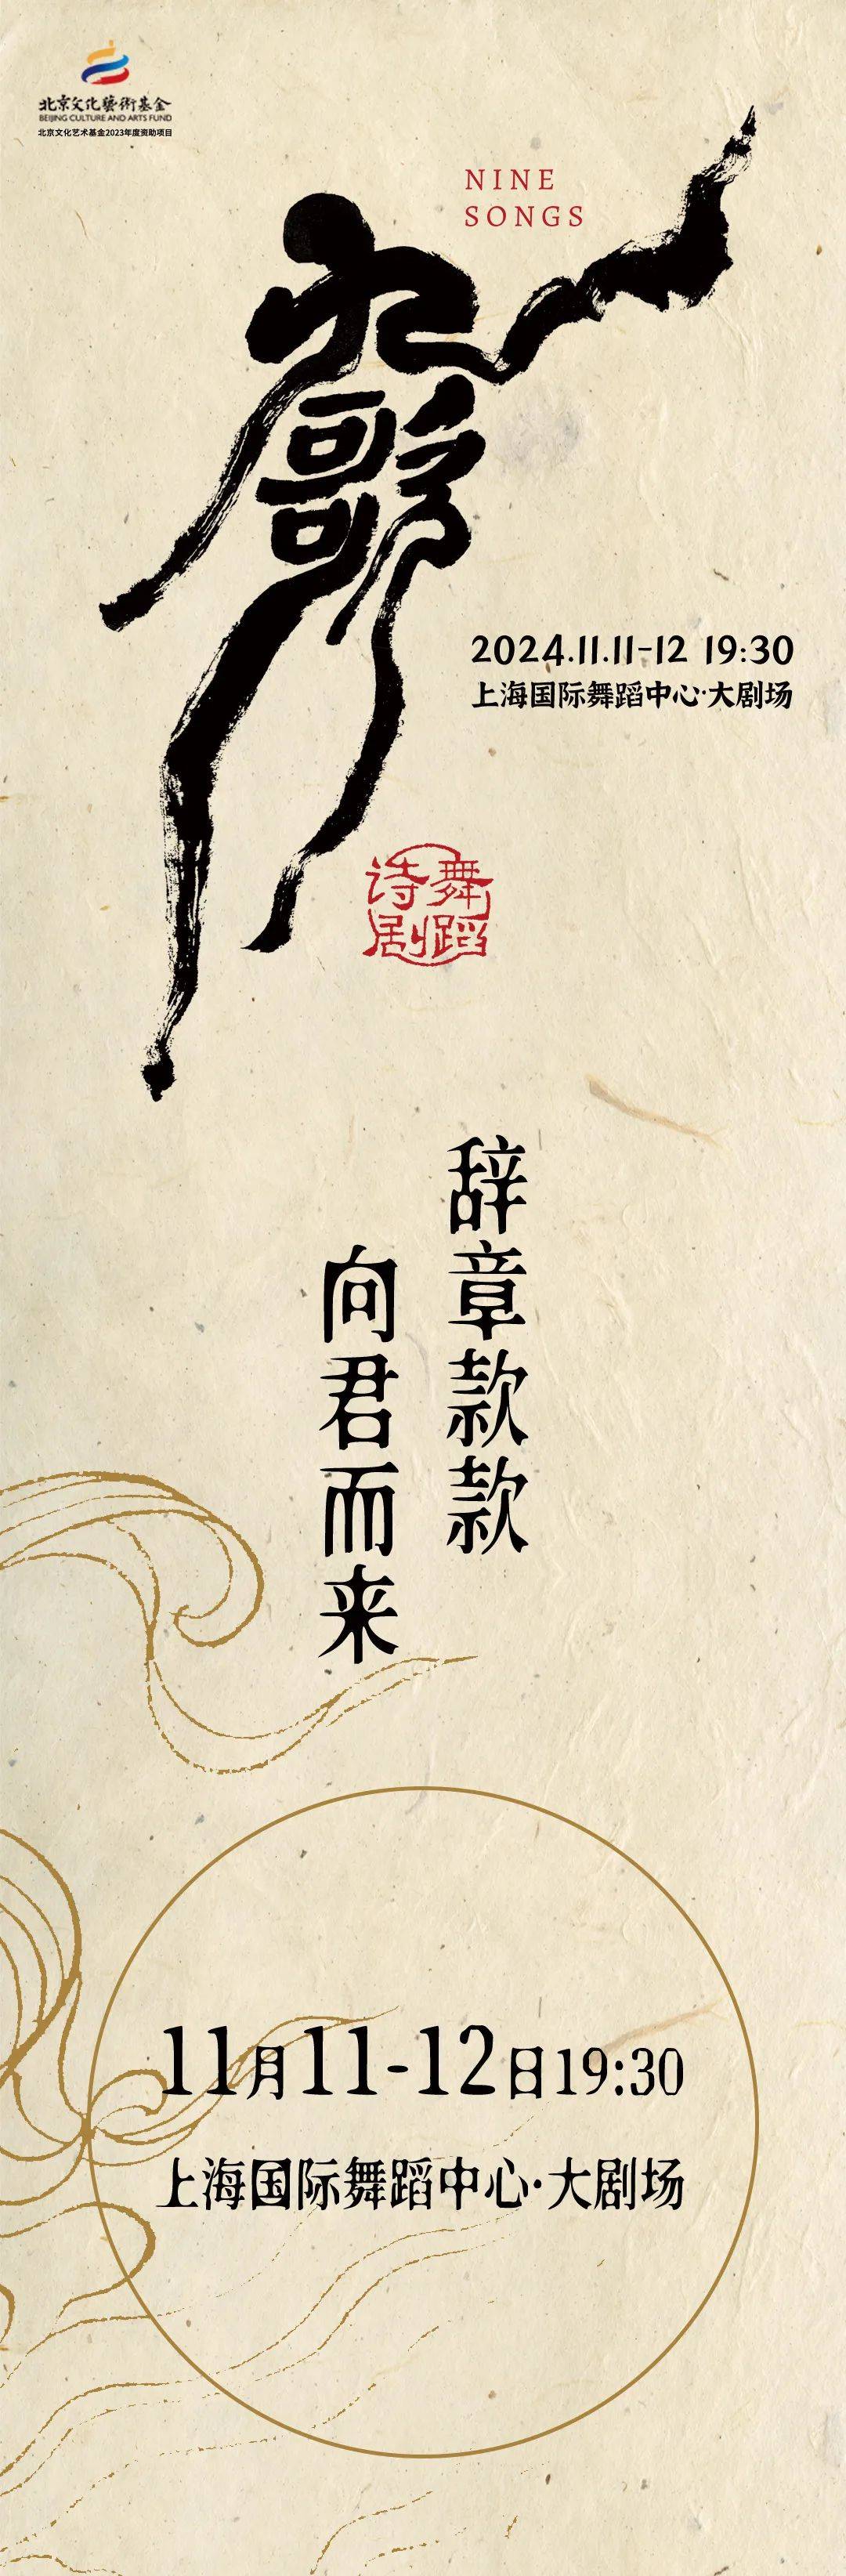 北京文化藝術基金
BEIJING CULTURE AND ARTS FUND
北京文化艺术基金2023年度资助项目
NINE
SONGS
九歌
2024.11.11-12 19:30
上海国际舞蹈中心·大剧场
舞蹈
诗剧
辞章款款
向君而来
11月11-12日19:30
上海国际舞蹈中心·大剧场